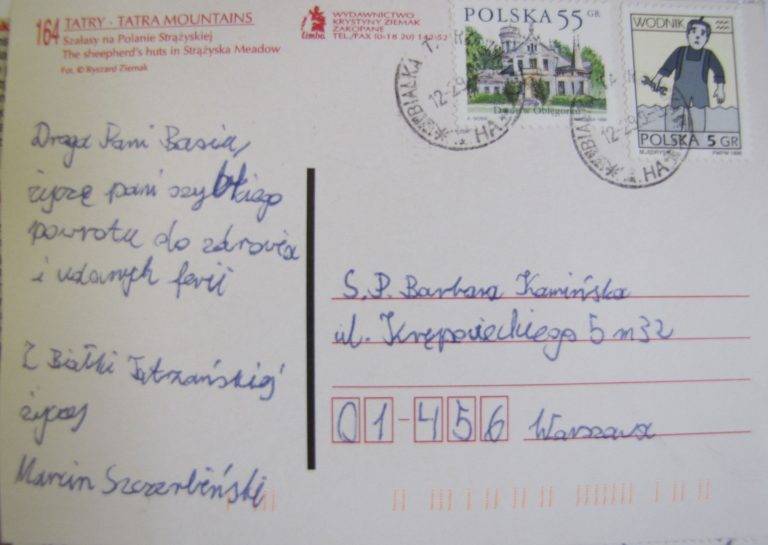 164 TATRY · TATRA MOUNTAINS
Szałasy na Polanie Strążyskiej
The sheepherd's huts in Strążyska Meadow
Fot. © Ryszard Ziemak
limba
WYDAWNICTWO
KRYSTYNY ZIEMAK
ZAKOPANE
TEL./FAX (0-18 20) 142-52
POLSKA 55 GR
Dworek w Oblęgorku
WODNIK
POLSKA 5 GR
BIAŁKA T
12-29
HA
12-29
HA
Droga Pani Basiu,
życzę pani szybkiego
powrotu do zdrowia
i udanych ferii
Z Białki Tatrzańskiej
życzy
Marcin Szczerbiński
S.P. Barbara Kamińska
ul. Krępowieckiego 5 m 32
01-456 Warszawa